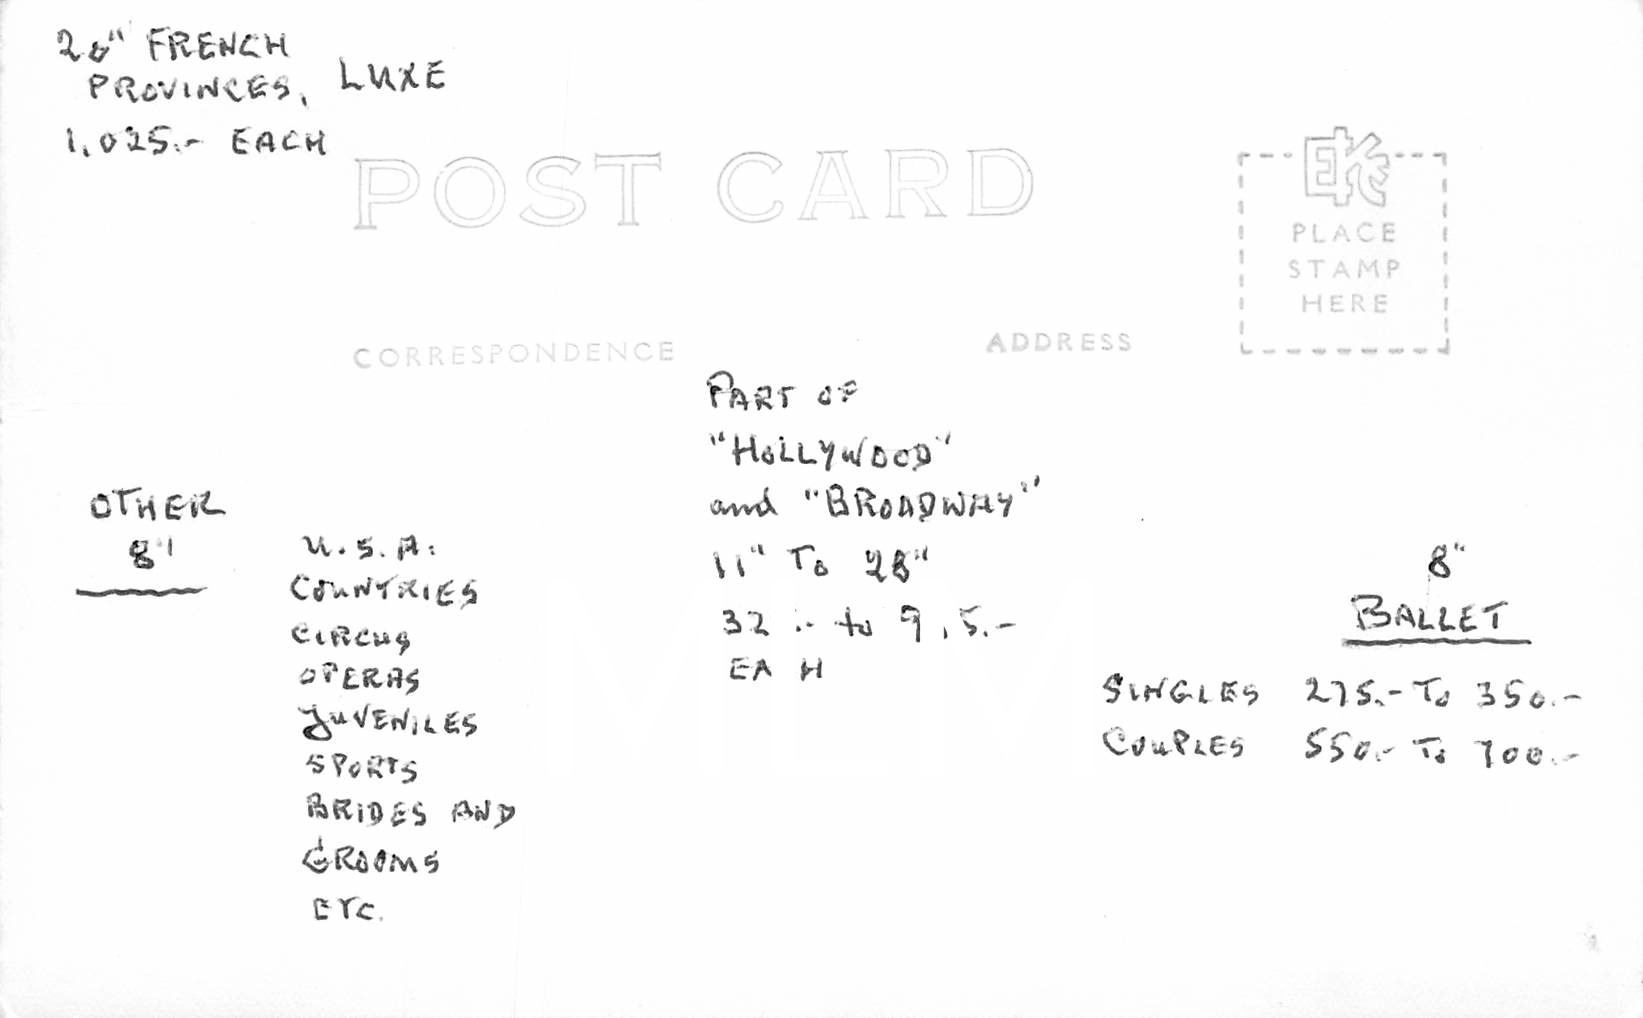 20" FRENCH
PROVINCES, LUXE
1,025.- EACH
POST CARD
EKC
PLACE
STAMP
HERE
CORRESPONDENCE
ADDRESS
PART OF
"HOLLYWOOD"
and "BROADWAY"
11" To 28"
32 .- to 9,5.-
EA H
OTHER
8"
U.S.A:
COUNTRIES
CIRCUS
OPERAS
JUVENILES
SPORTS
BRIDES AND
GROOMS
ETC.
8"
BALLET
SINGLES 275.- To 350.-
COUPLES 550.- To 700.-